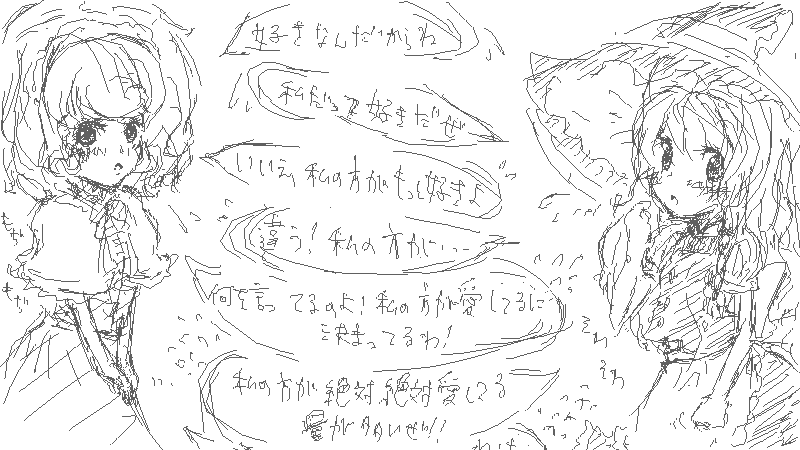 好きなんだからね
私だって好きだぜ
いいえ、私の方がもっと好きよ
違う！私の方が・・・
何を言ってるのよ！私の方が愛してるに
決まってるわ！
私の方が絶対、絶対愛してる
量が多いぜ！！